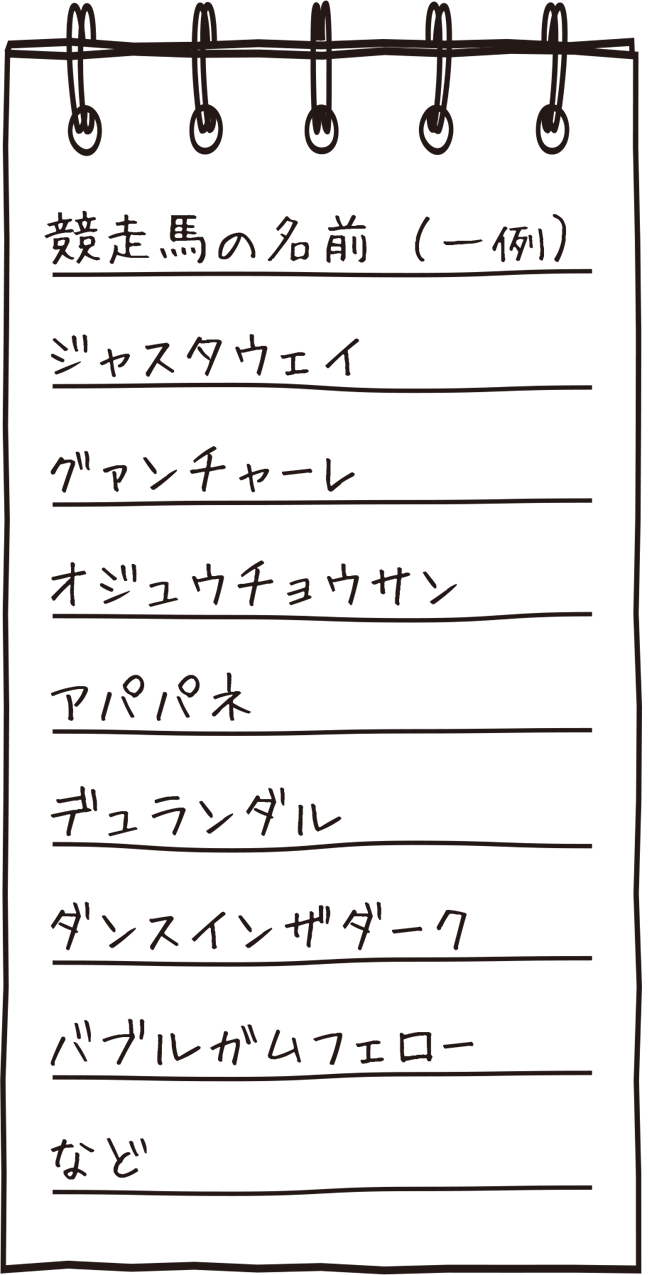 競走馬の名前（一例）
ジャスタウェイ
グァンチャーレ
オジュウチョウサン
アパパネ
デュランダル
ダンスインザダーク
バブルガムフェロー
など